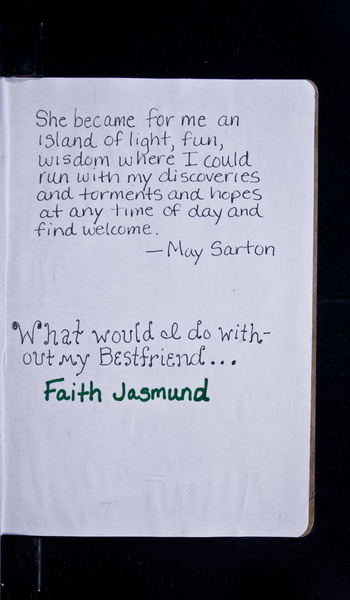 She became for me an
island of light, fun,
wisdom where I could
run with my discoveries
and torments and hopes
at any time of day and
find welcome.
—May Sarton
What would I do with-
out my Bestfriend...
Faith Jasmund